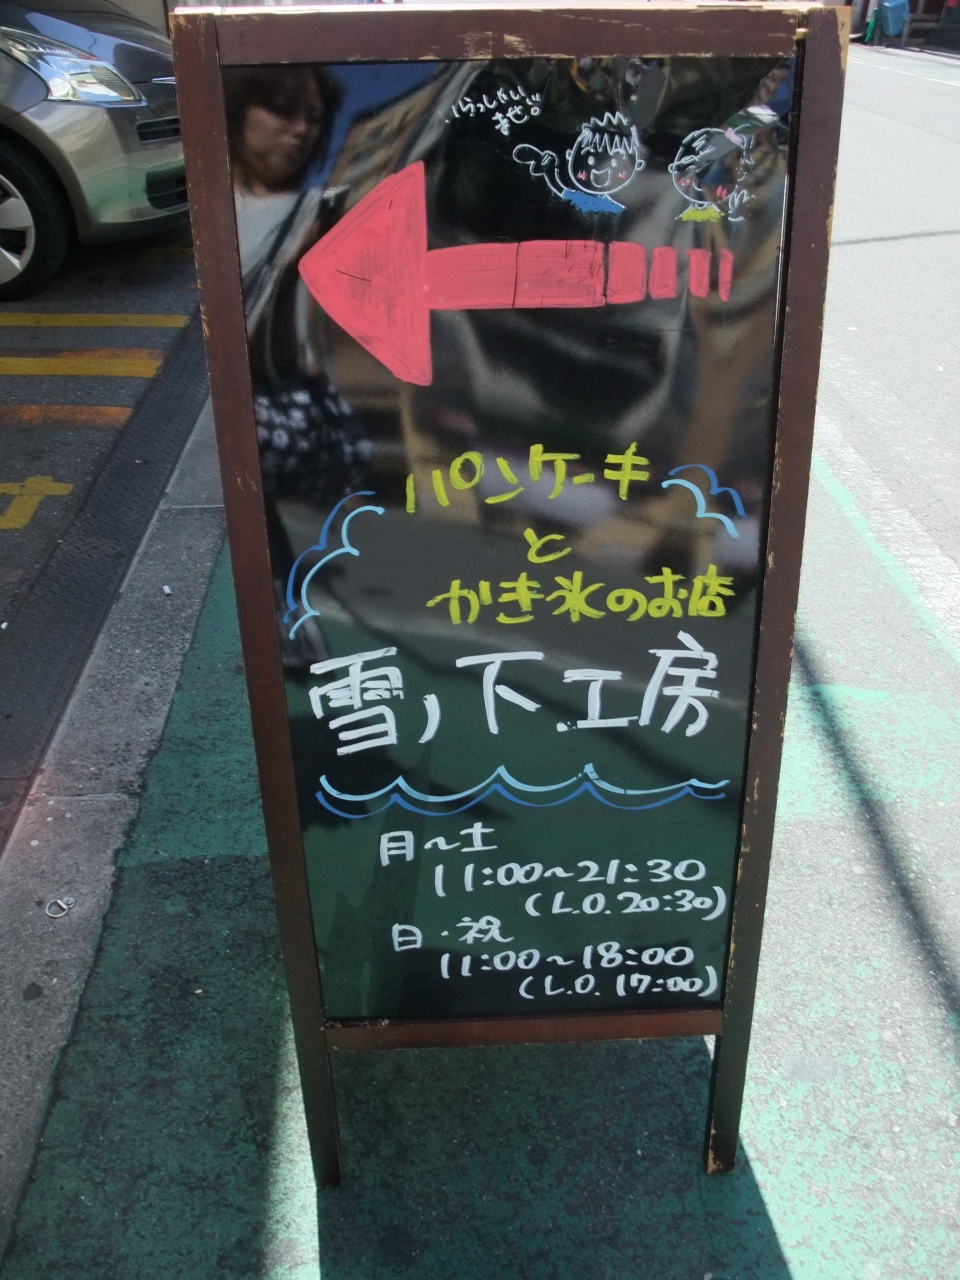 いらっしゃい
ませ。
パンケーキ
と
かき氷のお店
雪ノ下工房
月〜土
11:00〜21:30
(L.O. 20:30)
日・祝
11:00〜18:00
(L.O. 17:00)